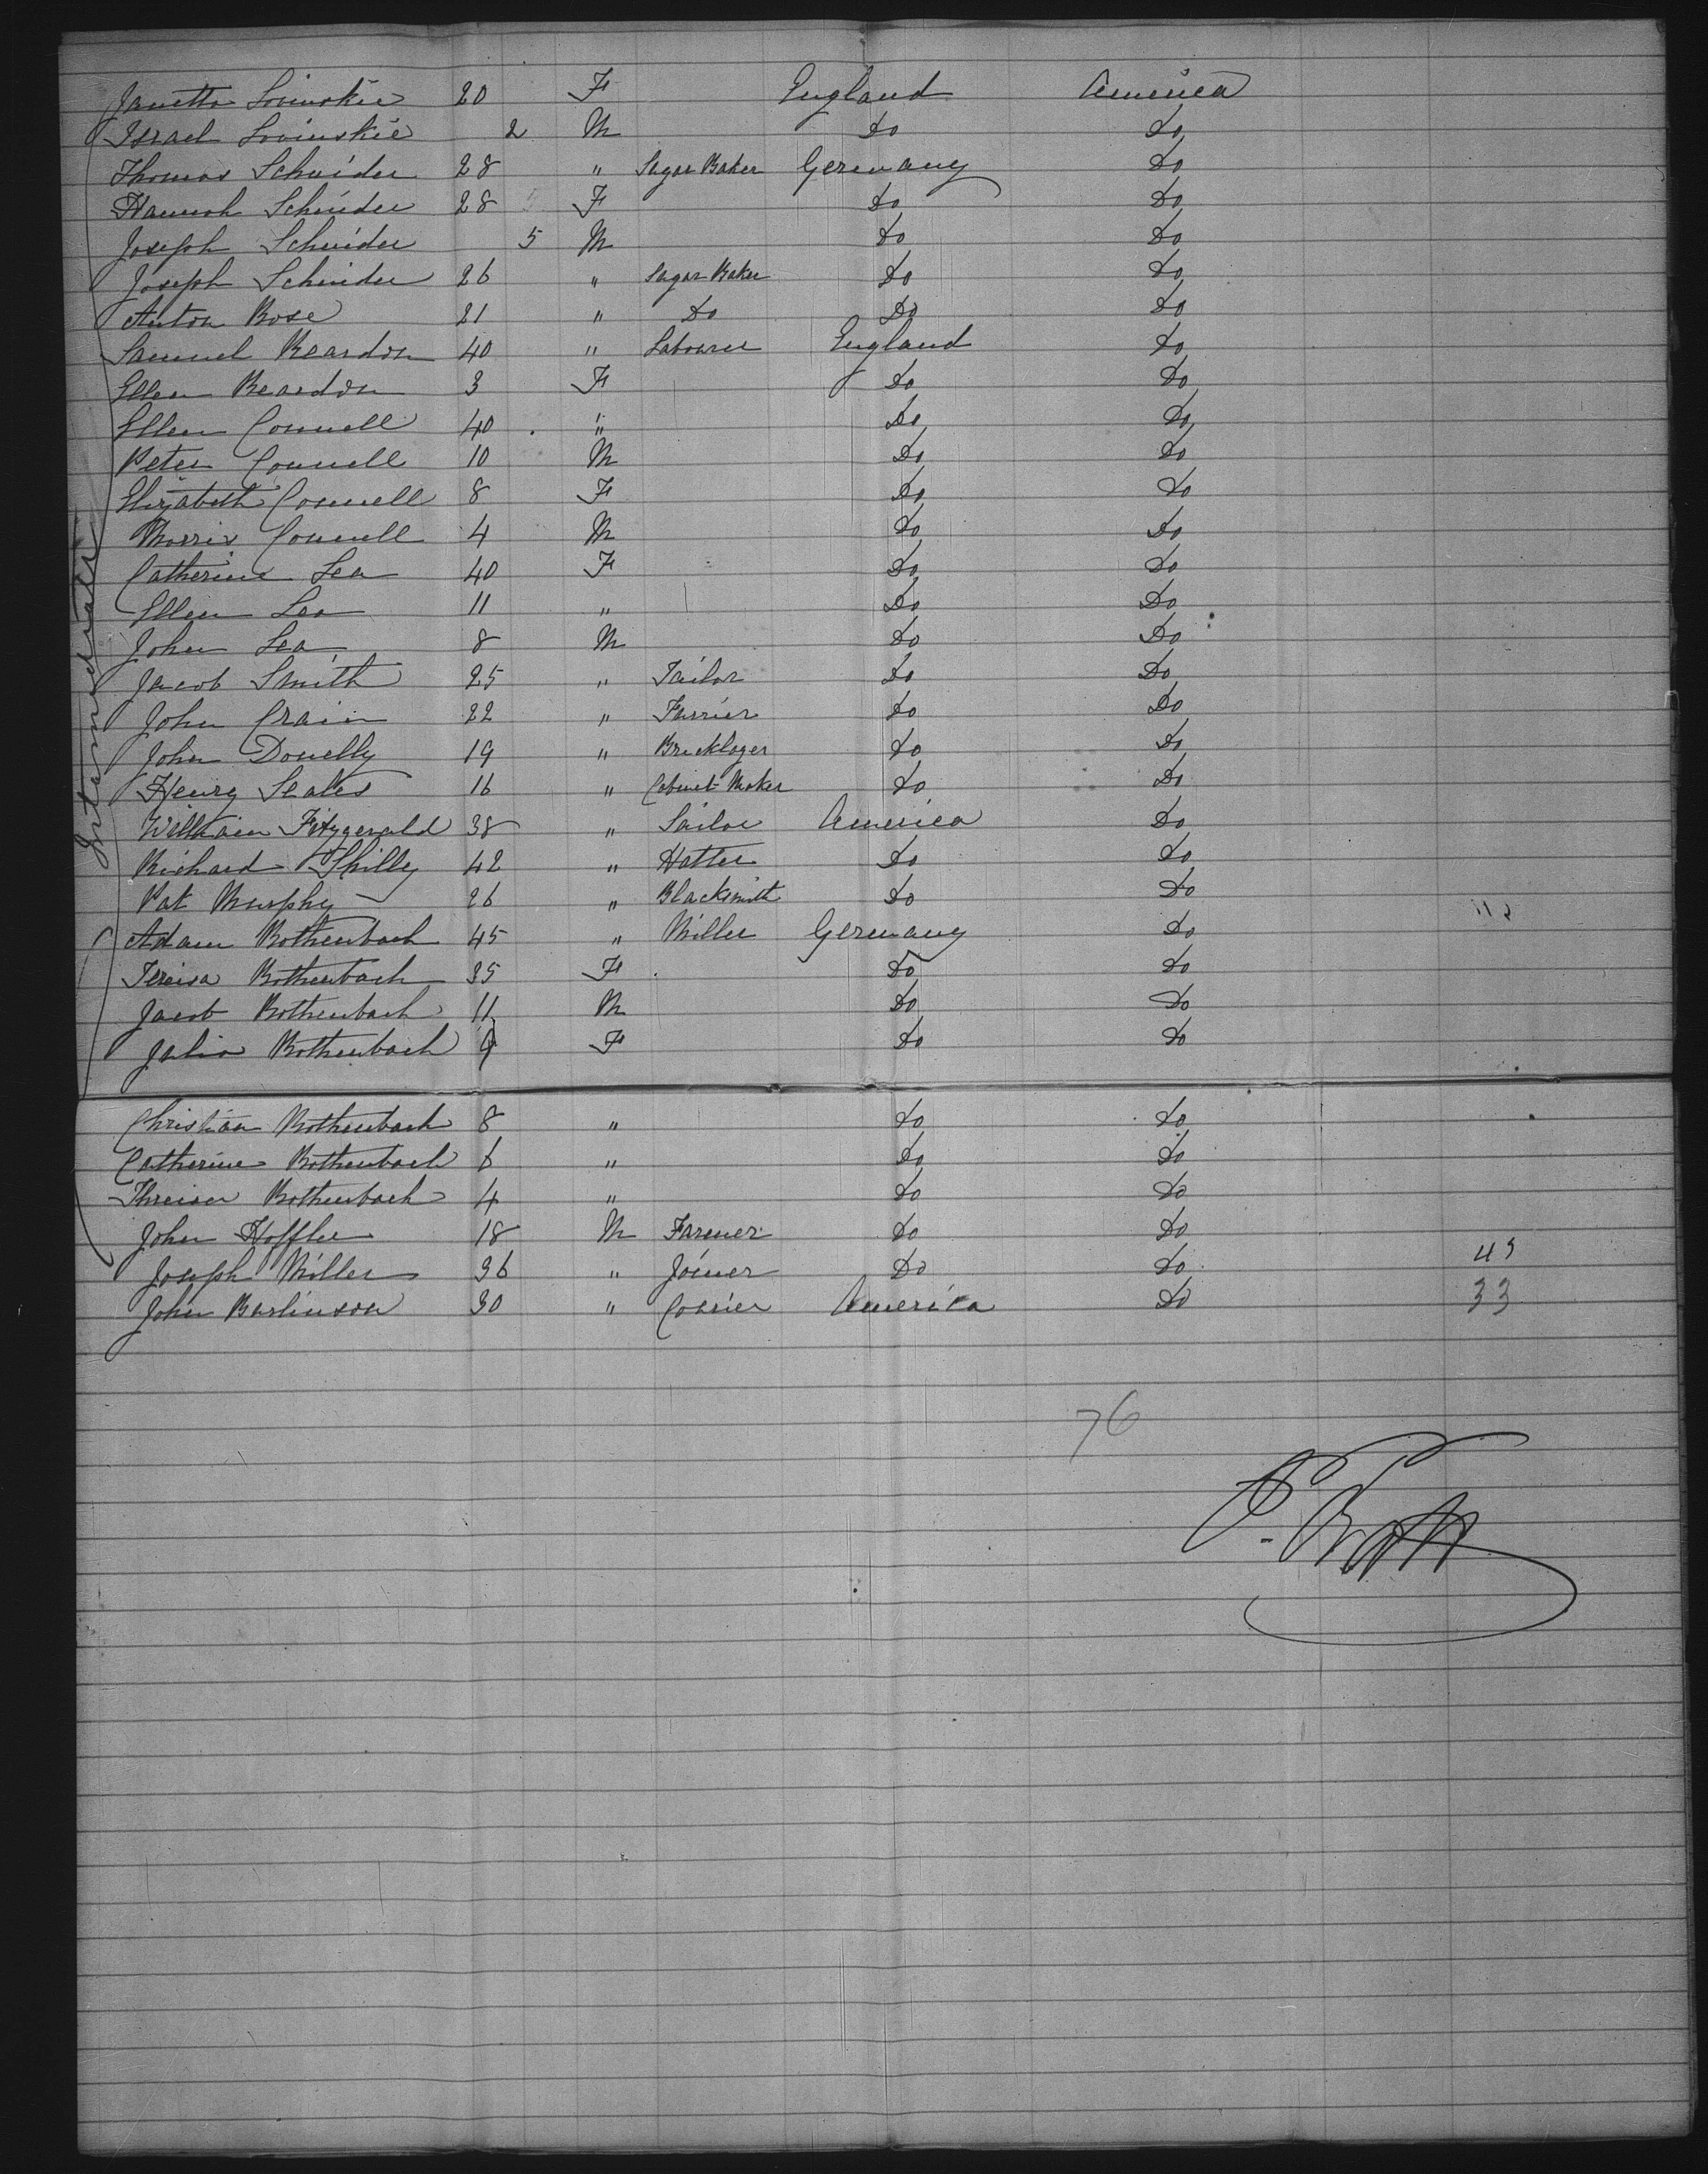 Janetta Lovinskie 20 F England America
Israel Lovinskie 2 M Do Do
Thomas Schnider 28 " Sugar Baker Germany Do
Hannah Schnider 28 F Do Do
Joseph Schnider 5 M Do Do
Joseph Schnider 26 " Sugar Baker Do Do
Anton Bose 21 " Do Do Do
Samuel Reardon 40 " Labourer England Do
Ellen Reardon 3 F Do Do
Ellen Connell 40 " Do Do
Peter Connell 10 M Do Do
Elizabeth Connell 8 F Do Do
Morris Connell 4 M Do Do
Catherine Lea 40 F Do Do
Ellen Lea 11 " Do Do
John Lea 8 M Do Do
Jacob Smith 25 " Tailor Do Do
John Crain 22 " Farrier Do Do
John Donelly 19 " Bricklayer Do Do
Henry Seales 16 " Cabinet Maker Do Do
William Fitzgerald 38 " Sailor America Do
Richard Skilly 42 " Hatter Do Do
Pat Murphy 26 " Blacksmith Do Do
Adam Rothenbach 45 " Miller Germany Do
Tereisa Rothenbach 35 F Do Do
Jacob Rothenbach 11 M Do Do
Julia Rothenbach 9 F Do Do
Christian Rothenbach 8 " Do Do
Catherine Rothenbach 6 " Do Do
Threisa Rothenbach 4 " Do Do
John Hoffler 18 M Farmer Do Do
Joseph Miller 36 " Joiner Do Do
John Barlinson 30 " Courier America Do 33
76